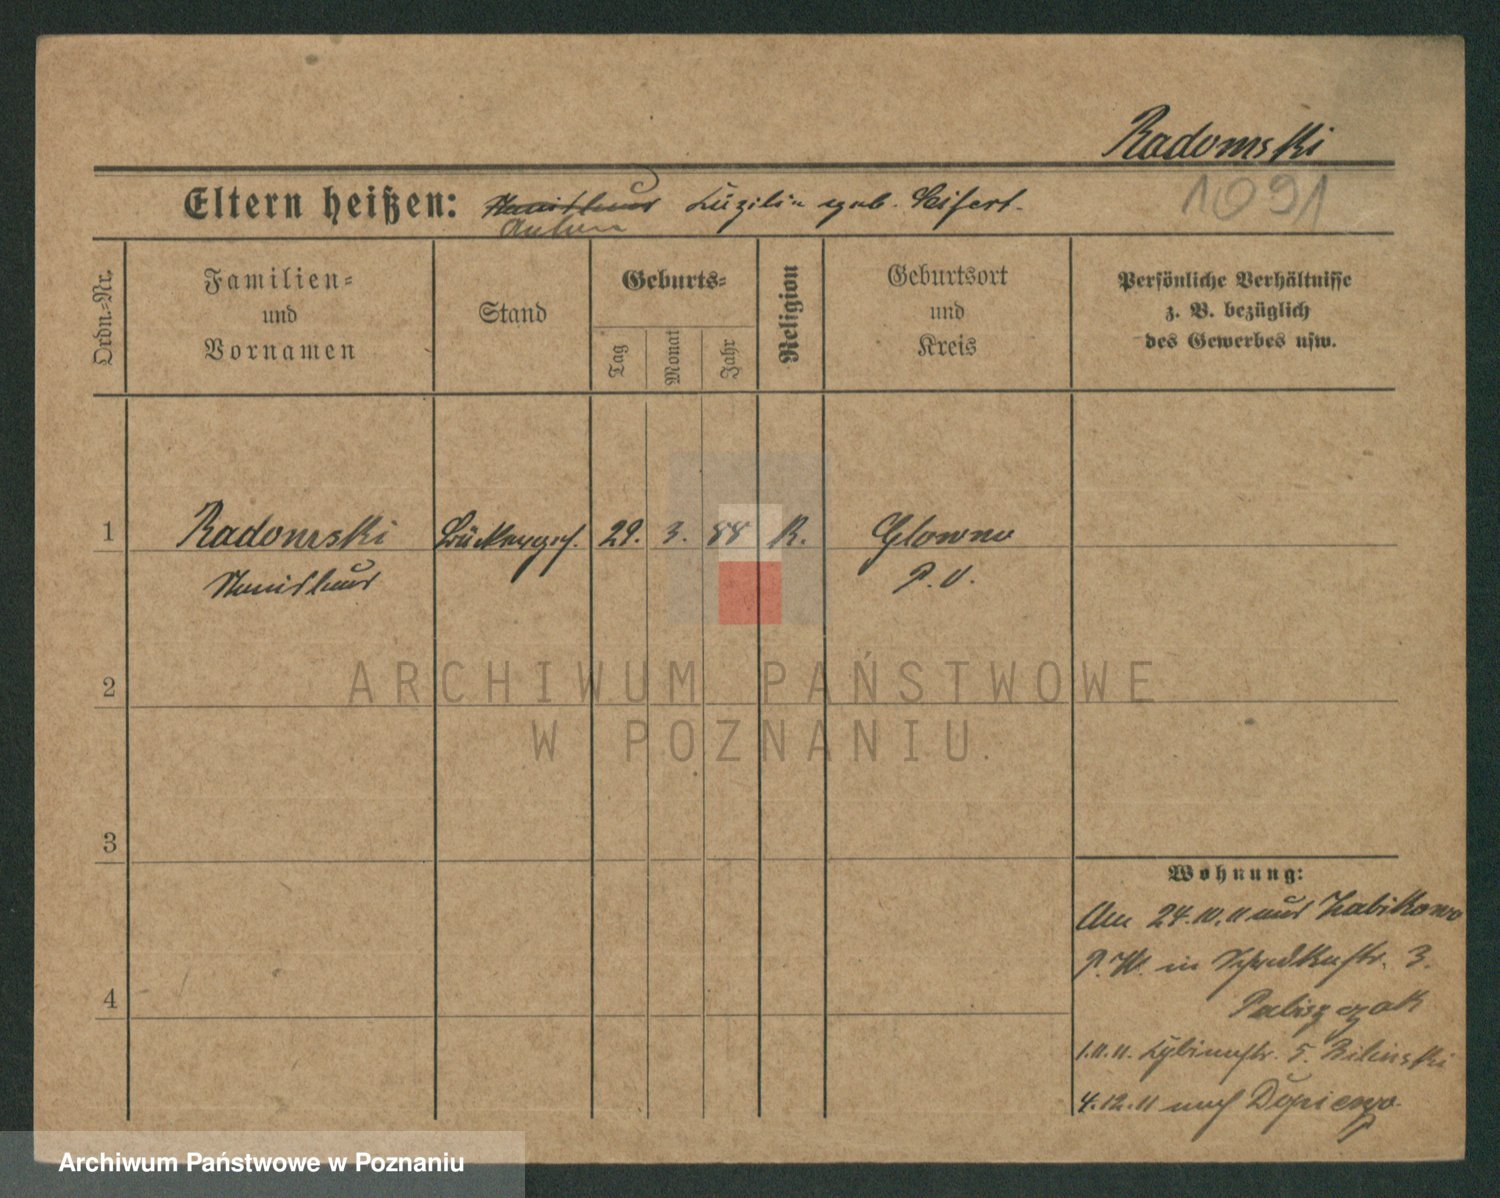 Radomski
1091
Eltern heißen: Stanislaus Luzilia geb. Seifert.
Anton
Ordn.-Nr.
Familien-
und
Vornamen
Stand
Geburts-
Tag
Monat
Jahr
Religion
Geburtsort
und
Kreis
Persönliche Verhältnisse
z. B. bezüglich
des Gewerbes usw.
1 Radomski 29. 3. 88 R. Glowno
Stanislaus P. O.
2
ARCHIWUM PAŃSTWOWE
W POZNANIU
3
Wohnung:
Am 24.10.11 aus Zabikowo
P. W. in 3.
4
1.11.11. 5. Bilinski
4.12.11 nach Dopiewo
Archiwum Państwowe w Poznaniu